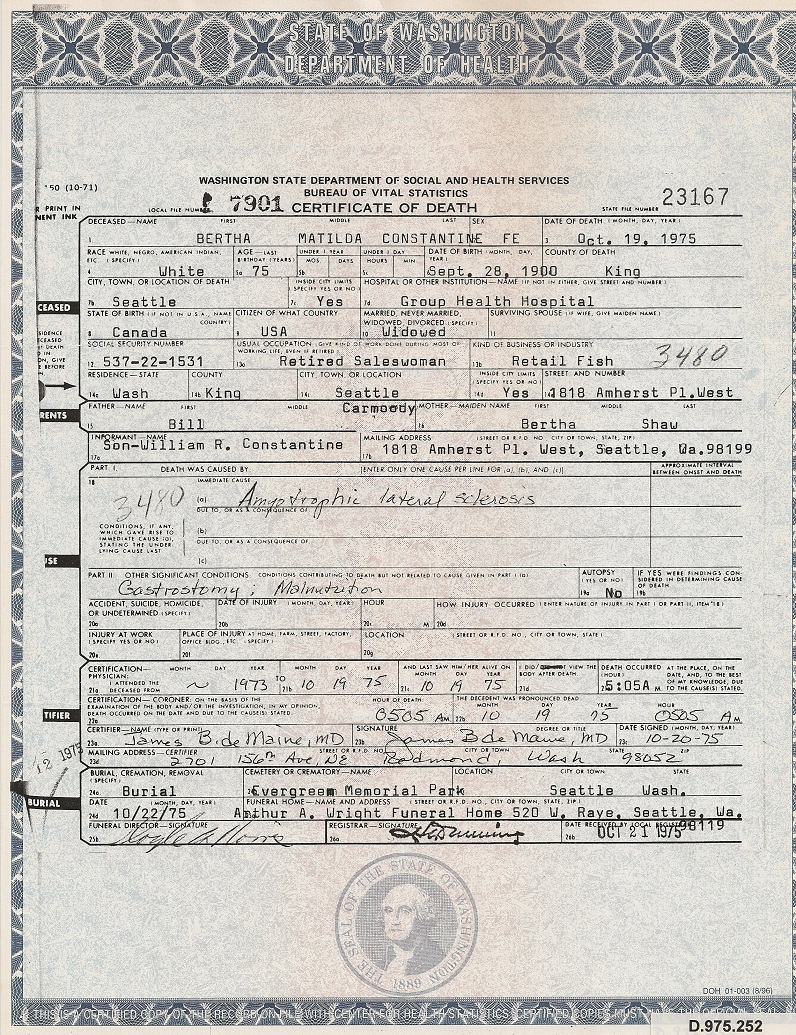 STATE OF WASHINGTON
DEPARTMENT OF HEALTH
WASHINGTON STATE DEPARTMENT OF SOCIAL AND HEALTH SERVICES
BUREAU OF VITAL STATISTICS
'50 (10-71)
PRINT IN
NENT INK
LOCAL FILE NUMBER 7901 CERTIFICATE OF DEATH STATE FILE NUMBER 23167
DECEASED—NAME FIRST MIDDLE LAST SEX DATE OF DEATH (MONTH, DAY, YEAR)
1 BERTHA MATILDA CONSTANTINE FE 3 Oct. 19, 1975
RACE WHITE, NEGRO, AMERICAN INDIAN, ETC. (SPECIFY) AGE—LAST BIRTHDAY (YEARS) UNDER 1 YEAR MOS DAYS UNDER 1 DAY HOURS MIN. DATE OF BIRTH (MONTH, DAY, YEAR) COUNTY OF DEATH
4 White 5a 75 5b 5c Sept. 28, 1900 King
CITY, TOWN, OR LOCATION OF DEATH INSIDE CITY LIMITS (SPECIFY YES OR NO) HOSPITAL OR OTHER INSTITUTION—NAME (IF NOT IN EITHER, GIVE STREET AND NUMBER)
7b Seattle 7c Yes 7d Group Health Hospital
CEASED
STATE OF BIRTH (IF NOT IN U.S.A., NAME COUNTRY) CITIZEN OF WHAT COUNTRY MARRIED, NEVER MARRIED, WIDOWED, DIVORCED (SPECIFY) SURVIVING SPOUSE (IF WIFE, GIVE MAIDEN NAME)
8 Canada 9 USA 10 Widowed 11
SOCIAL SECURITY NUMBER USUAL OCCUPATION (GIVE KIND OF WORK DONE DURING MOST OF WORKING LIFE, EVEN IF RETIRED) KIND OF BUSINESS OR INDUSTRY
12 537-22-1531 13a Retired Saleswoman 13b Retail Fish 3480
RESIDENCE—STATE COUNTY CITY, TOWN, OR LOCATION INSIDE CITY LIMITS (SPECIFY YES OR NO) STREET AND NUMBER
14a Wash 14b King 14c Seattle 14d Yes 1818 Amherst Pl.West
RENTS
FATHER—NAME FIRST MIDDLE Carmoody MOTHER—MAIDEN NAME FIRST MIDDLE LAST
15 Bill 16 Bertha Shaw
INFORMANT—NAME MAILING ADDRESS (STREET OR R.F.D. NO., CITY OR TOWN, STATE, ZIP)
17a Son-William R. Constantine 17b 1818 Amherst Pl. West, Seattle, Wa.98199
PART I. DEATH WAS CAUSED BY: [ENTER ONLY ONE CAUSE PER LINE FOR (a), (b), AND (c)] APPROXIMATE INTERVAL BETWEEN ONSET AND DEATH
18 IMMEDIATE CAUSE
3480 (a) Amyotrophic lateral sclerosis
DUE TO, OR AS A CONSEQUENCE OF
CONDITIONS, IF ANY, WHICH GAVE RISE TO IMMEDIATE CAUSE (a), STATING THE UNDERLYING CAUSE LAST
(b)
DUE TO, OR AS A CONSEQUENCE OF
(c)
USE
PART II. OTHER SIGNIFICANT CONDITIONS CONDITIONS CONTRIBUTING TO DEATH BUT NOT RELATED TO CAUSE GIVEN IN PART I (a) AUTOPSY (YES OR NO) IF YES WERE FINDINGS CONSIDERED IN DETERMINING CAUSE OF DEATH
Gastrostomy; Malnutrition 19a No 19b
ACCIDENT, SUICIDE, HOMICIDE, OR UNDETERMINED (SPECIFY) DATE OF INJURY (MONTH, DAY, YEAR) HOUR HOW INJURY OCCURRED (ENTER NATURE OF INJURY IN PART I OR PART II, ITEM 18)
20a 20b 20c M 20d
INJURY AT WORK (SPECIFY YES OR NO) PLACE OF INJURY AT HOME, FARM, STREET, FACTORY, OFFICE BLDG., ETC. (SPECIFY) LOCATION (STREET OR R.F.D. NO., CITY OR TOWN, STATE)
20e 20f 20g
CERTIFICATION— PHYSICIAN: MONTH DAY YEAR MONTH DAY YEAR AND LAST SAW HIM/HER ALIVE ON MONTH DAY YEAR I DID/ VIEW THE BODY AFTER DEATH DEATH OCCURRED (HOUR) AT THE PLACE, ON THE DATE, AND, TO THE BEST OF MY KNOWLEDGE, DUE TO THE CAUSE(S) STATED.
21a I ATTENDED THE DECEASED FROM ~ 1973 TO 21b 10 19 75 21c 10 19 75 21d 5:05A M
CERTIFICATION—CORONER: ON THE BASIS OF THE EXAMINATION OF THE BODY AND/OR THE INVESTIGATION, IN MY OPINION, DEATH OCCURRED ON THE DATE AND DUE TO THE CAUSE(S) STATED. HOUR OF DEATH THE DECEDENT WAS PRONOUNCED DEAD MONTH DAY YEAR HOUR
22a 0505 AM 22b 10 19 75 0505 AM
TIFIER
CERTIFIER—NAME (TYPE OR PRINT) SIGNATURE DEGREE OR TITLE DATE SIGNED (MONTH, DAY, YEAR)
23a James B. de Maine, MD 23b James B de Maine, MD 23c 10-20-75
MAILING ADDRESS—CERTIFIER STREET OR R.F.D. NO. CITY OR TOWN STATE ZIP
23d 2701 156th Ave, NE Redmond, Wash 98052
12 1975
BURIAL, CREMATION, REMOVAL (SPECIFY) CEMETERY OR CREMATORY—NAME LOCATION CITY OR TOWN STATE
24a Burial Evergreen Memorial Park Seattle Wash.
BURIAL
DATE (MONTH, DAY, YEAR) FUNERAL HOME—NAME AND ADDRESS (STREET OR R.F.D. NO., CITY OR TOWN, STATE, ZIP)
24d 10/22/75 Arthur A. Wright Funeral Home 520 W. Raye, Seattle, Wa.
98119
FUNERAL DIRECTOR—SIGNATURE REGISTRAR—SIGNATURE DATE RECEIVED BY LOCAL REGISTRAR
25b 26a 26b OCT 21 1975
THE SEAL OF THE STATE OF WASHINGTON
1889
DOH 01-003 (8/96)
THIS IS A CERTIFIED COPY OF THE RECORD ON FILE WITH CENTER FOR HEALTH STATISTICS. CERTIFIED COPIES MUST HAVE THE OFFICIAL SEAL
D.975.252